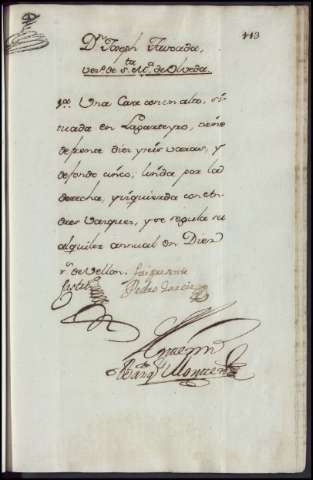 113
Dn. Joseph Taboada,
vezo. de Sta. Ma. de Olveda.
1a. Una Casa con un alto, si-
tuada en Laparteyro, tiene
de frente diez y seis varas, y
de fondo cinco; linda por la
derecha, e yzquierda con An-
dres Vazquez, y se regula su
alquiler annual en Diez
rs. de vellon.
Pedro Garcia